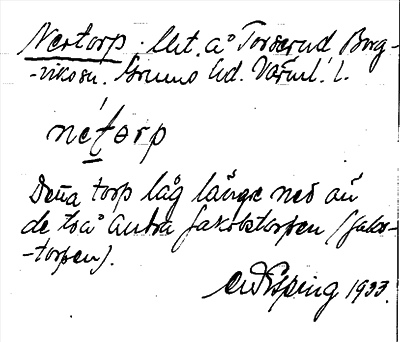 Nertorp. lht. å Torserud Borg-
-viks sn. Grums hd. Värml. l.
nétorp
Denna torp låg längre ned än
de två andra Jakobstorpen (Jakobs-
-torpen).
1933.